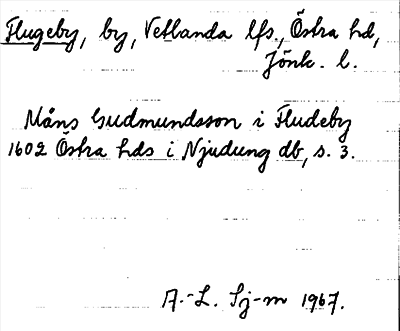 Flugeby, by, Vetlanda lfs., Östra hd,
Jönk. l.
Måns Gudmundsson i Fludeby
1602 Östra hds i Njudung db, s. 3.
A.-L. Sj-m 1967.